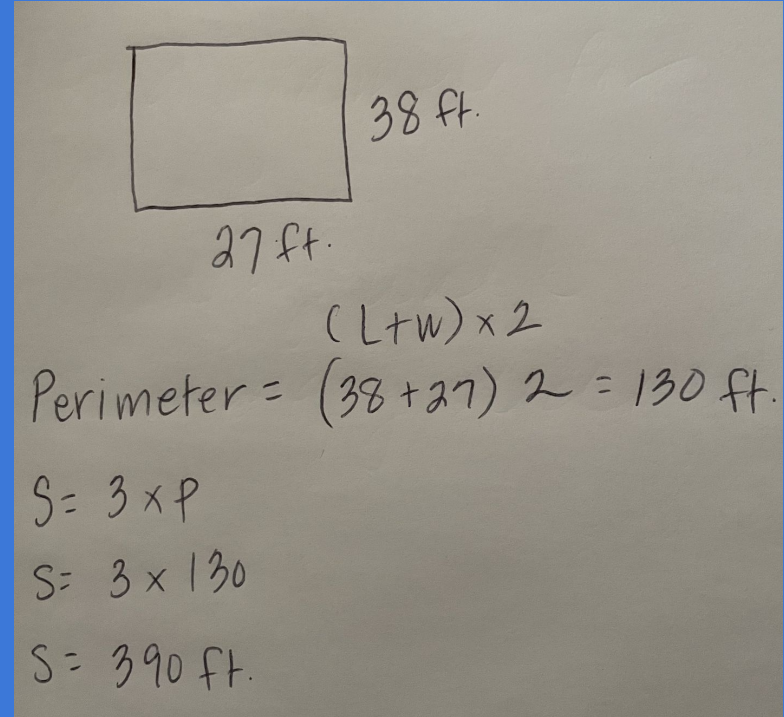 38 ft.
27 ft.
(L+W) x 2
Perimeter = (38 + 27) 2 = 130 ft.
S= 3 x P
S= 3 x 130
S= 390 ft.